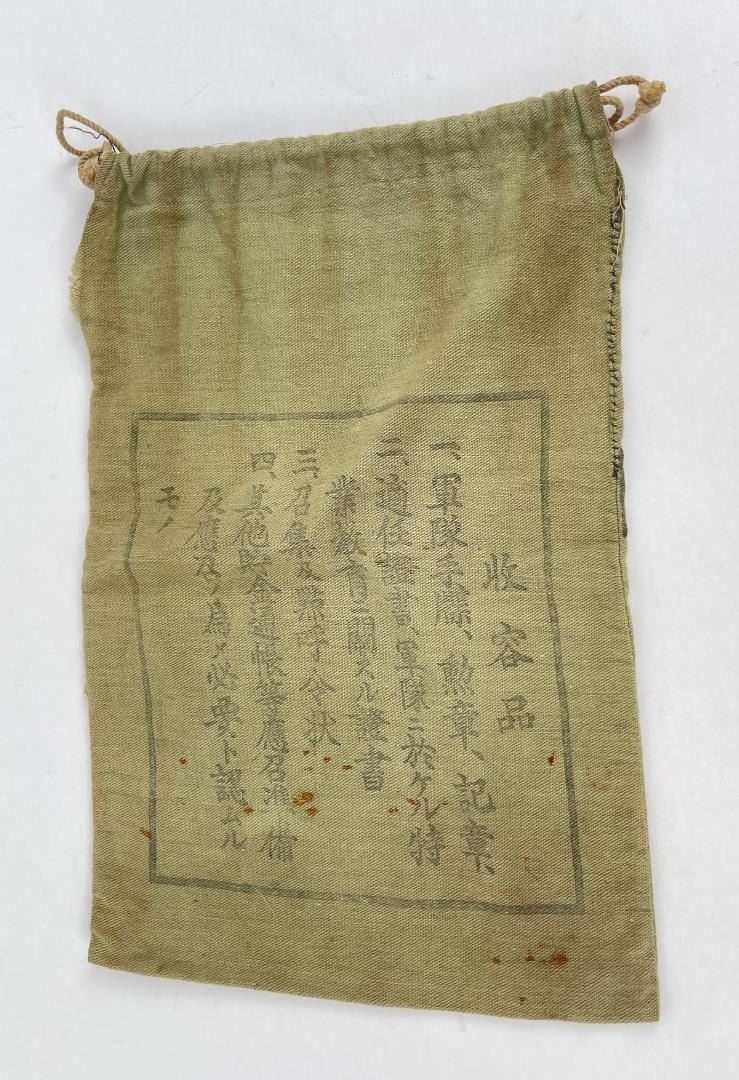 收容品
一、軍隊手牒、勲章、記章、
二、適任證書、軍隊ニ於ケル特
業敎育ニ關スル證書
三、召集及點呼令狀
四、其他貯金通帳等應召準備
及應召ノ爲メ必要ト認ムル
モノ